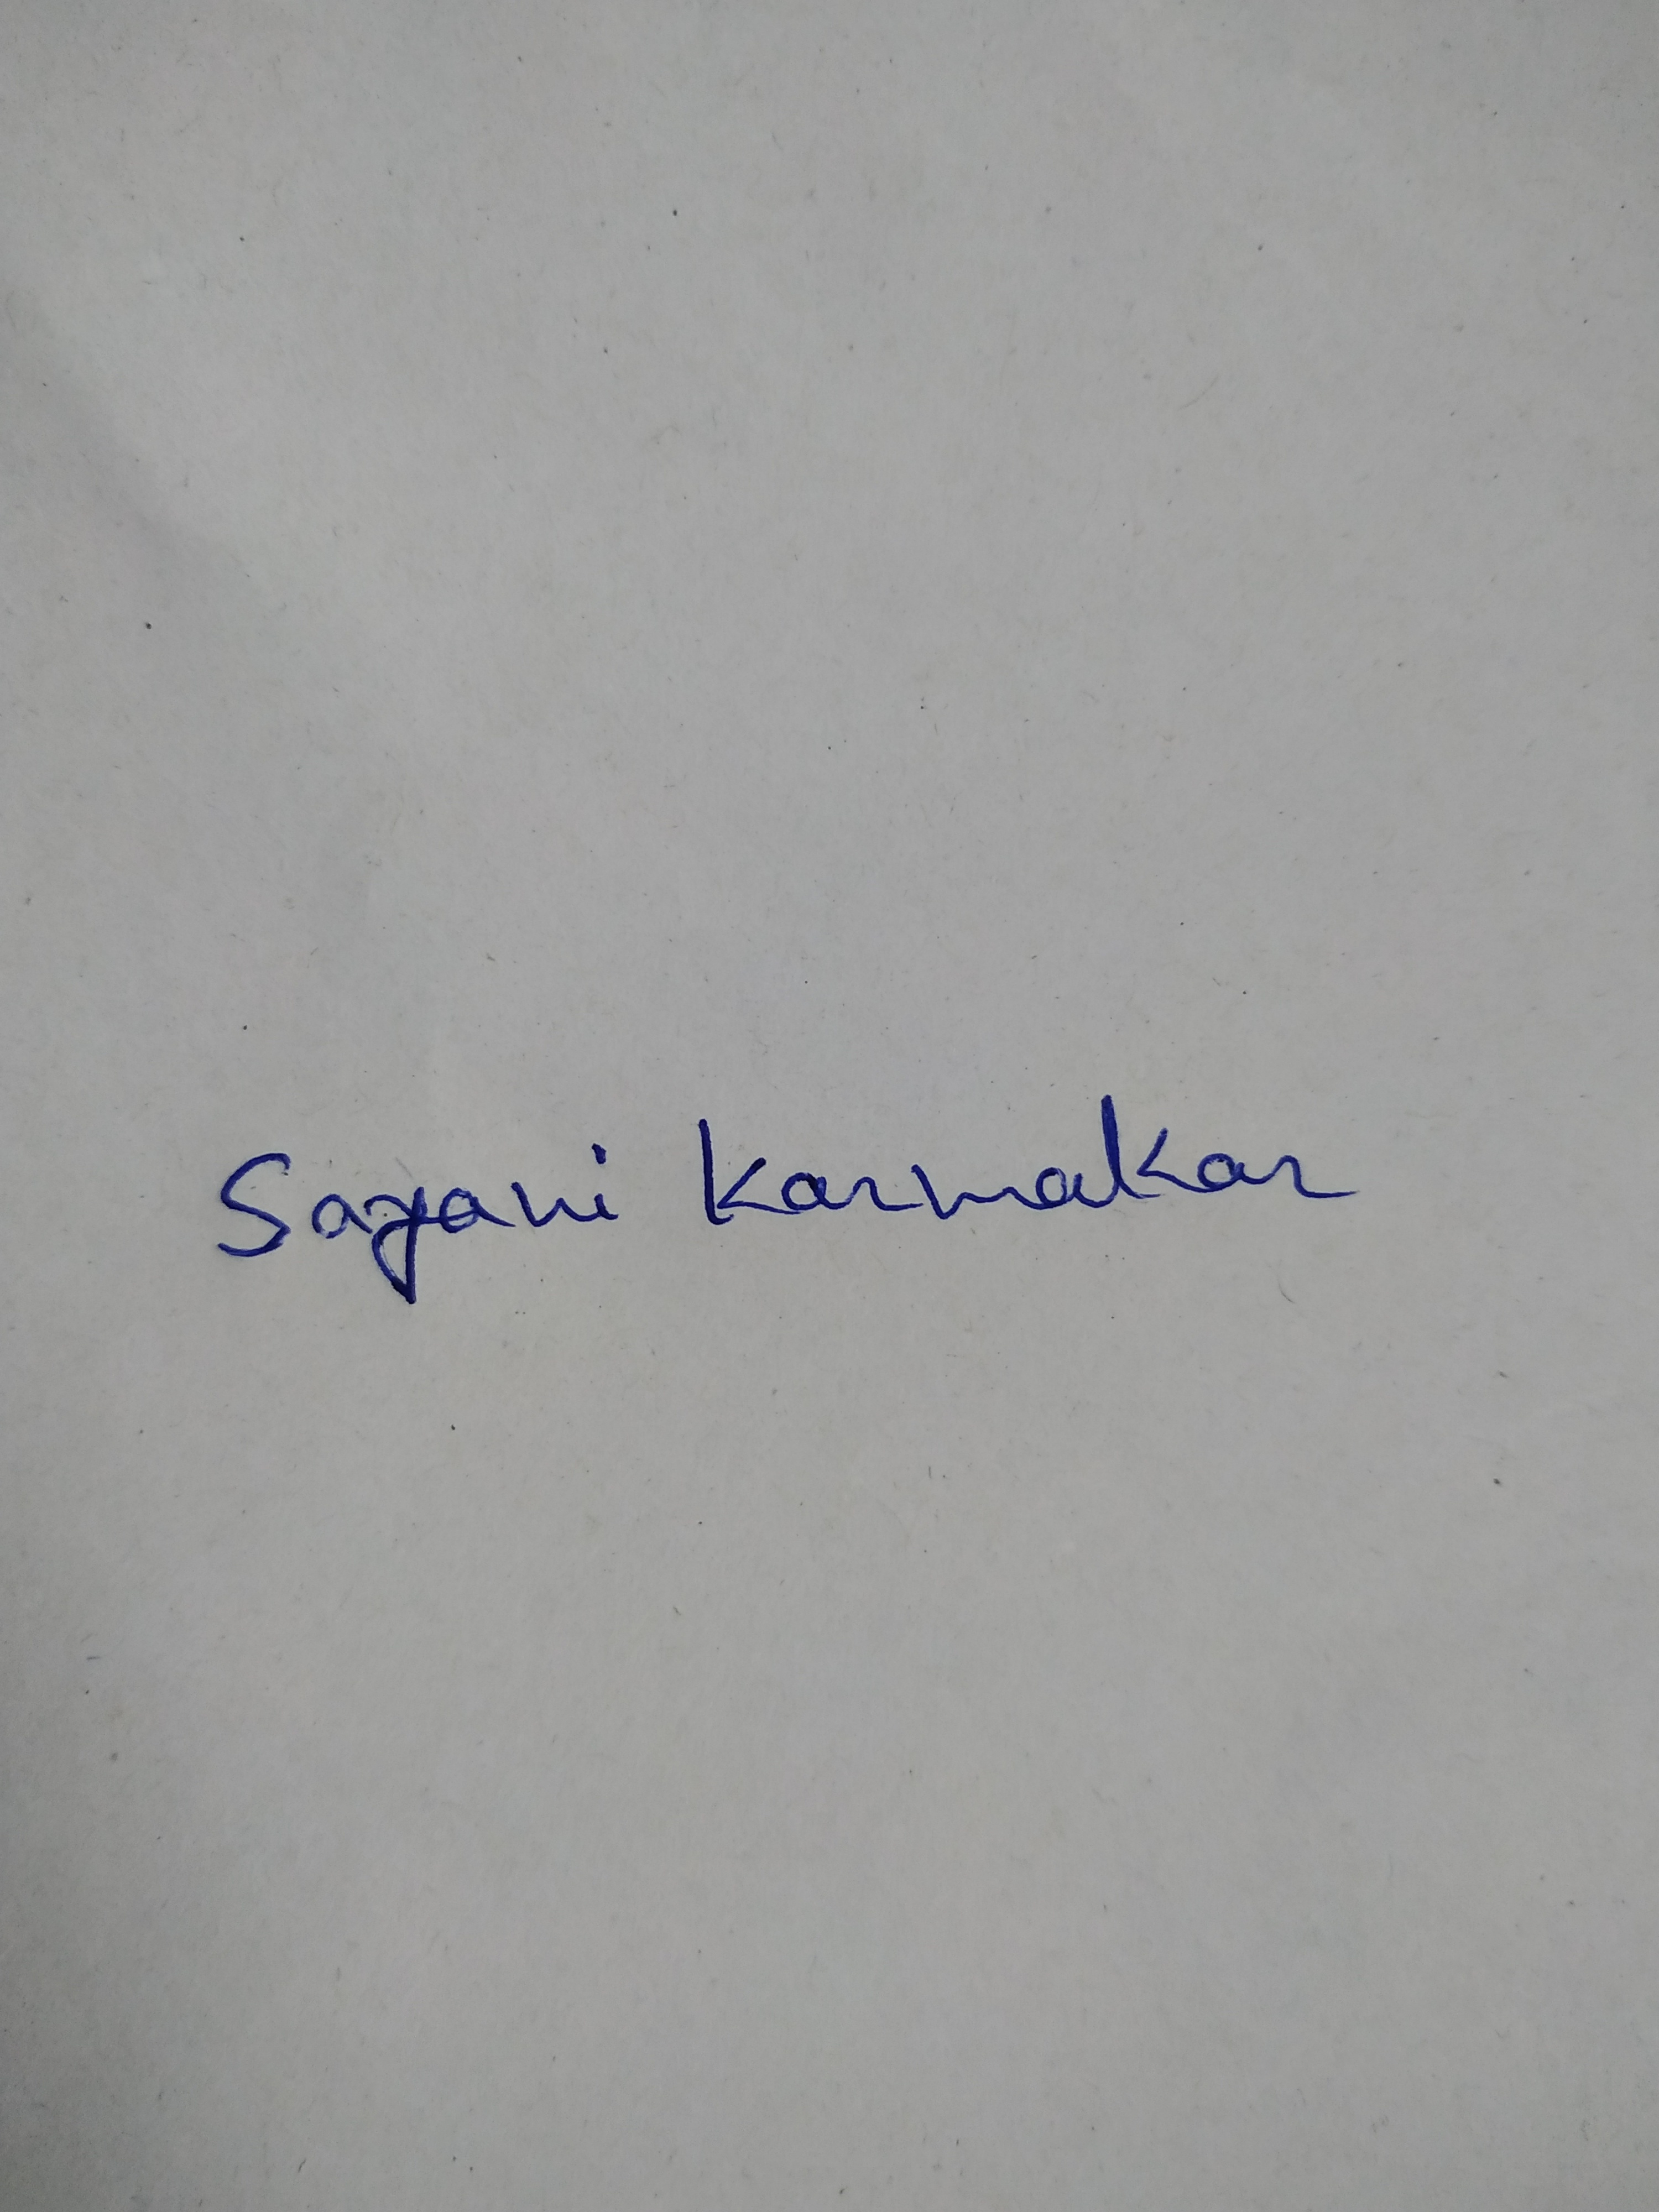 Sayani Karmakar